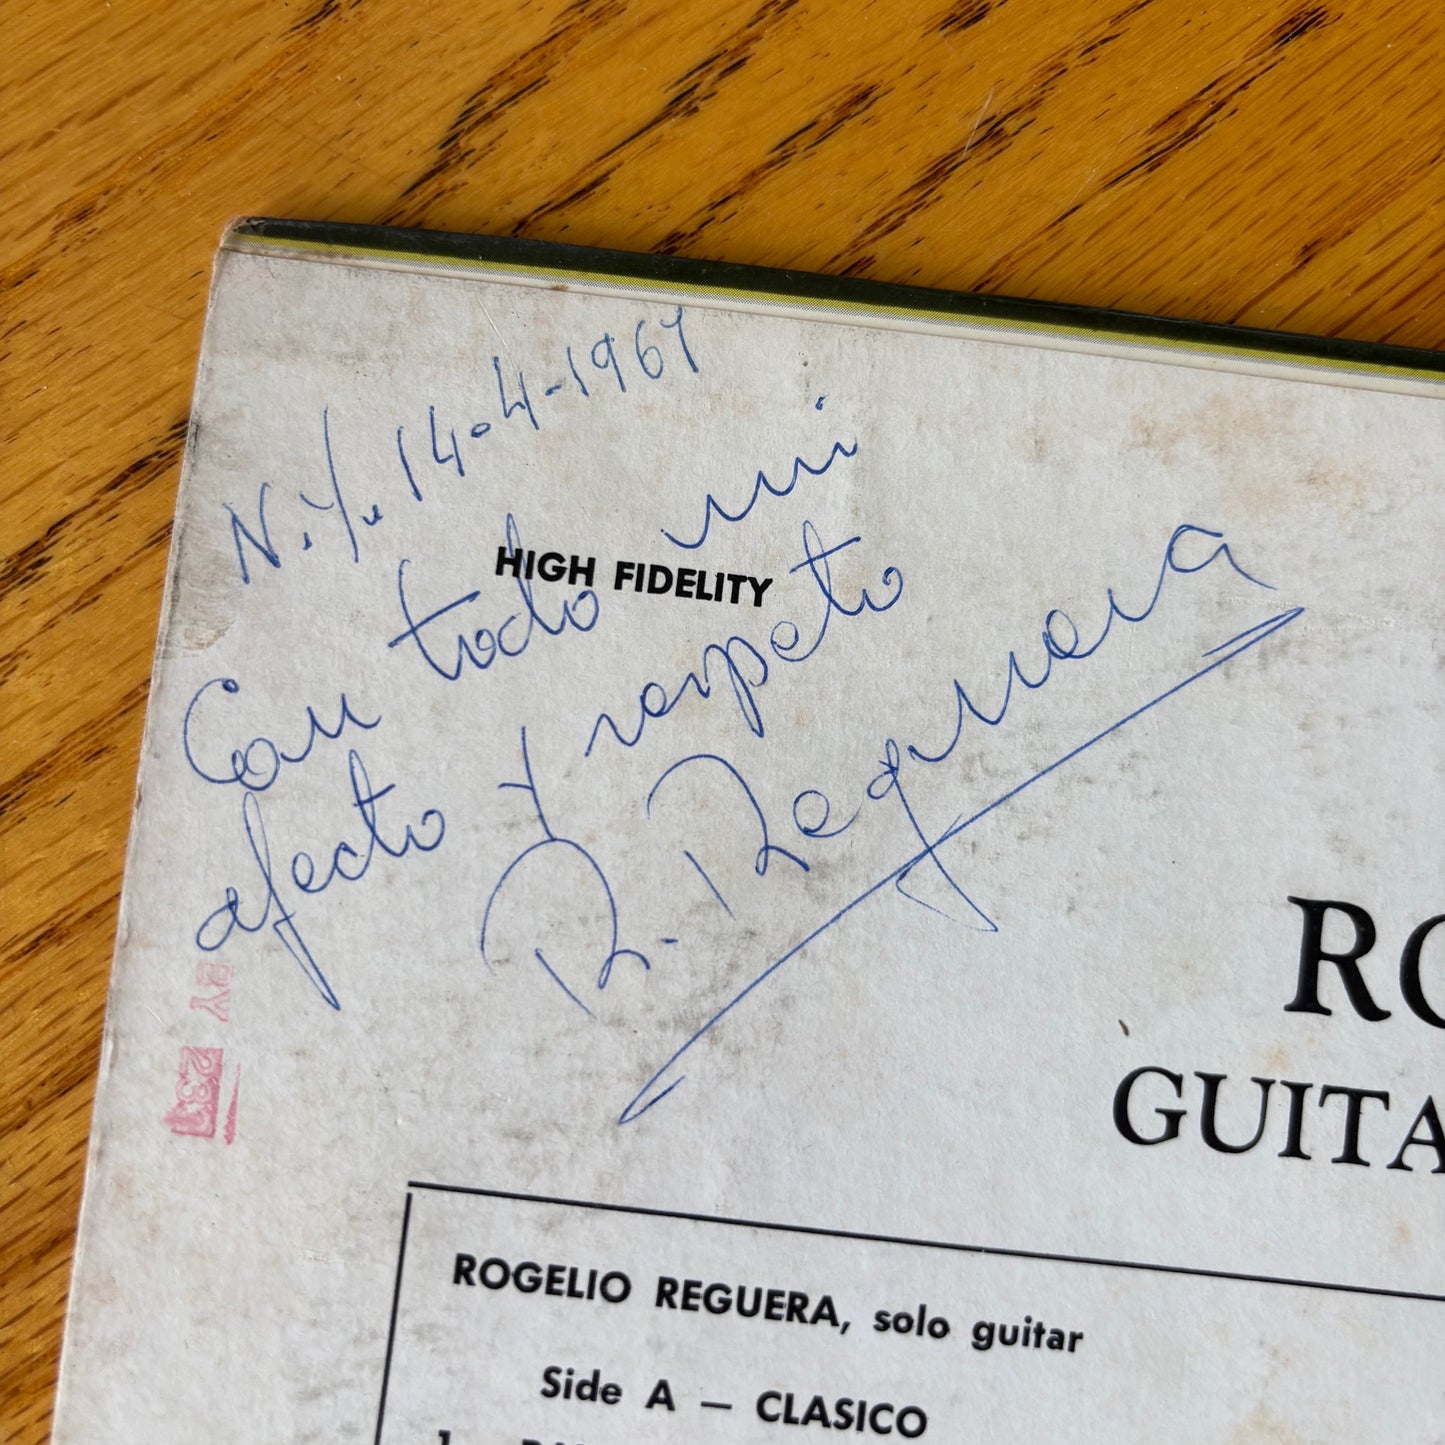 N.Y. 14-4-1967
Con todo mi
afecto y respeto
R. Reguera
HIGH FIDELITY
BY 237
RO
GUITA
ROGELIO REGUERA, solo guitar
Side A — CLASICO
1